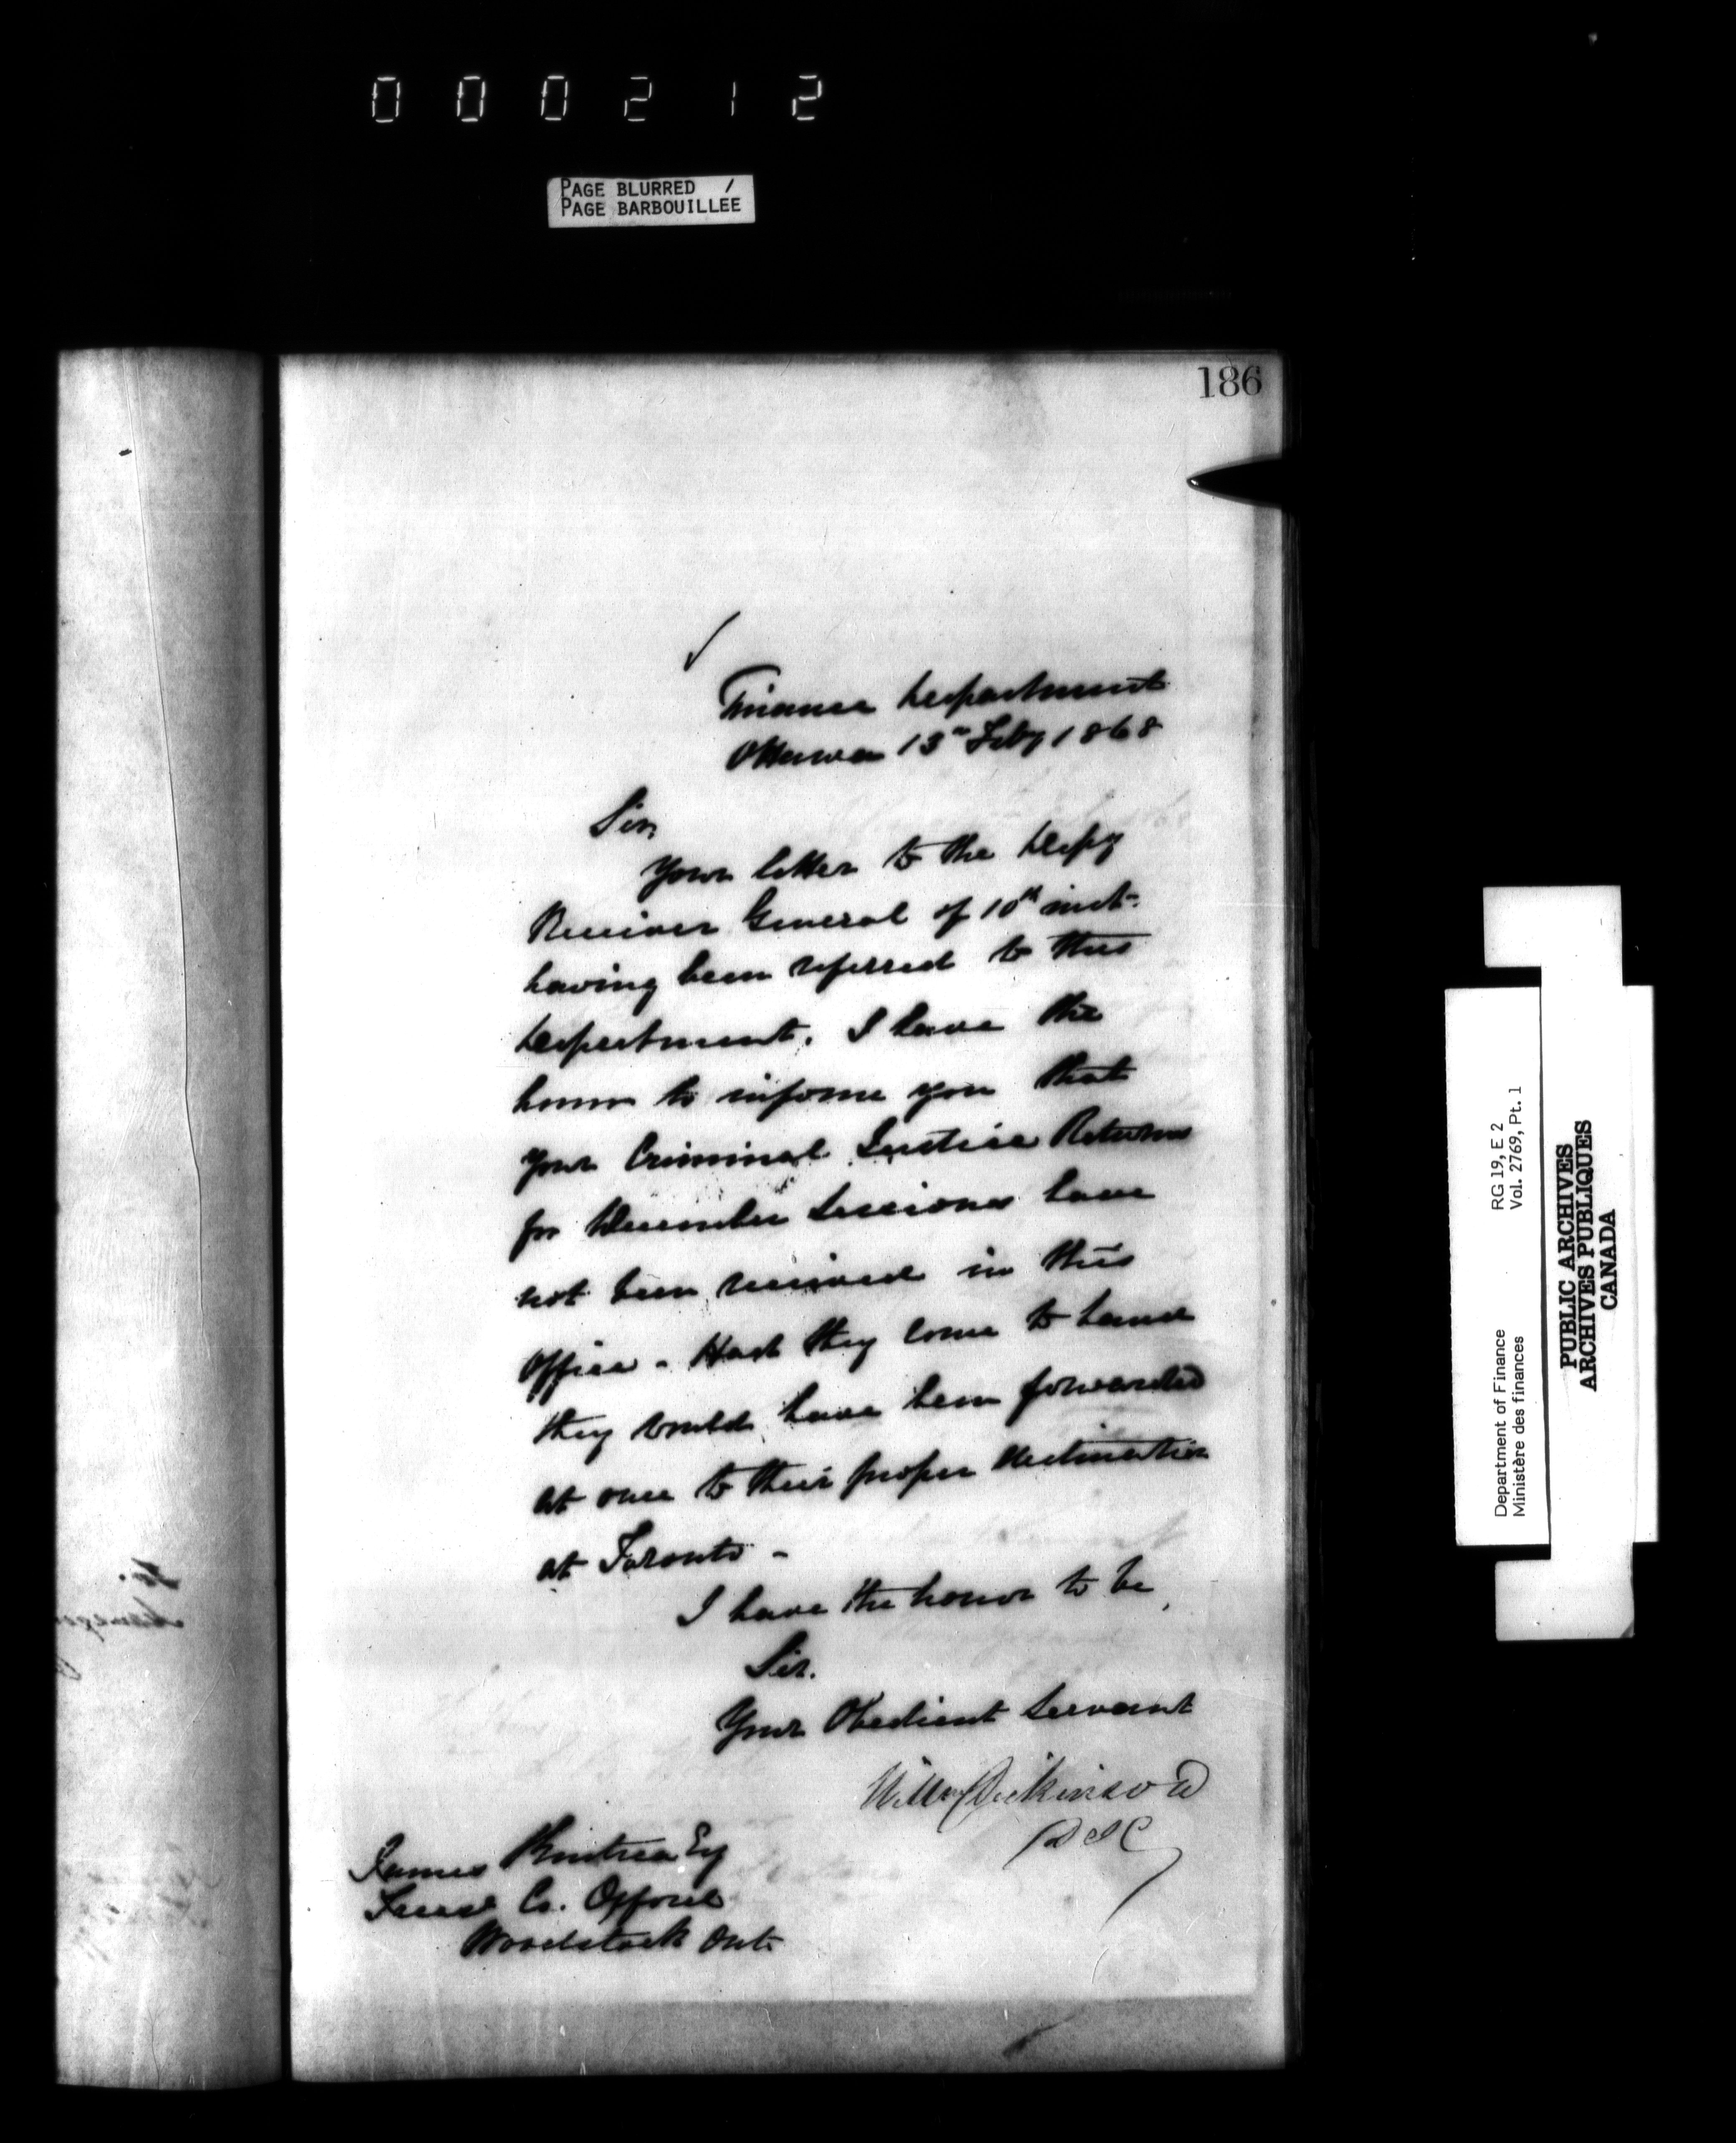 000212
PAGE BLURRED /
PAGE BARBOUILLEE
186
Finance Department
Ottawa 13th Feby 1868
Sir,
Your letter to the Depy
Receiver General of 10th inst.
having been referred to this
Department. I have the
honor to inform you that
your Criminal Justice Returns
for December Sessions have
not been received in this
Office - Had they come to hand
they would have been forwarded
at once to their proper destination
at Toronto -
I have the honor to be,
Sir.
Your Obedient Servant
Willm Dickinson
James Esq
Treasr Co. Oxford
Woodstock Ont.
Department of Finance RG 19, E 2
Ministère des finances Vol. 2769, Pt. 1
PUBLIC ARCHIVES
ARCHIVES PUBLIQUES
CANADA